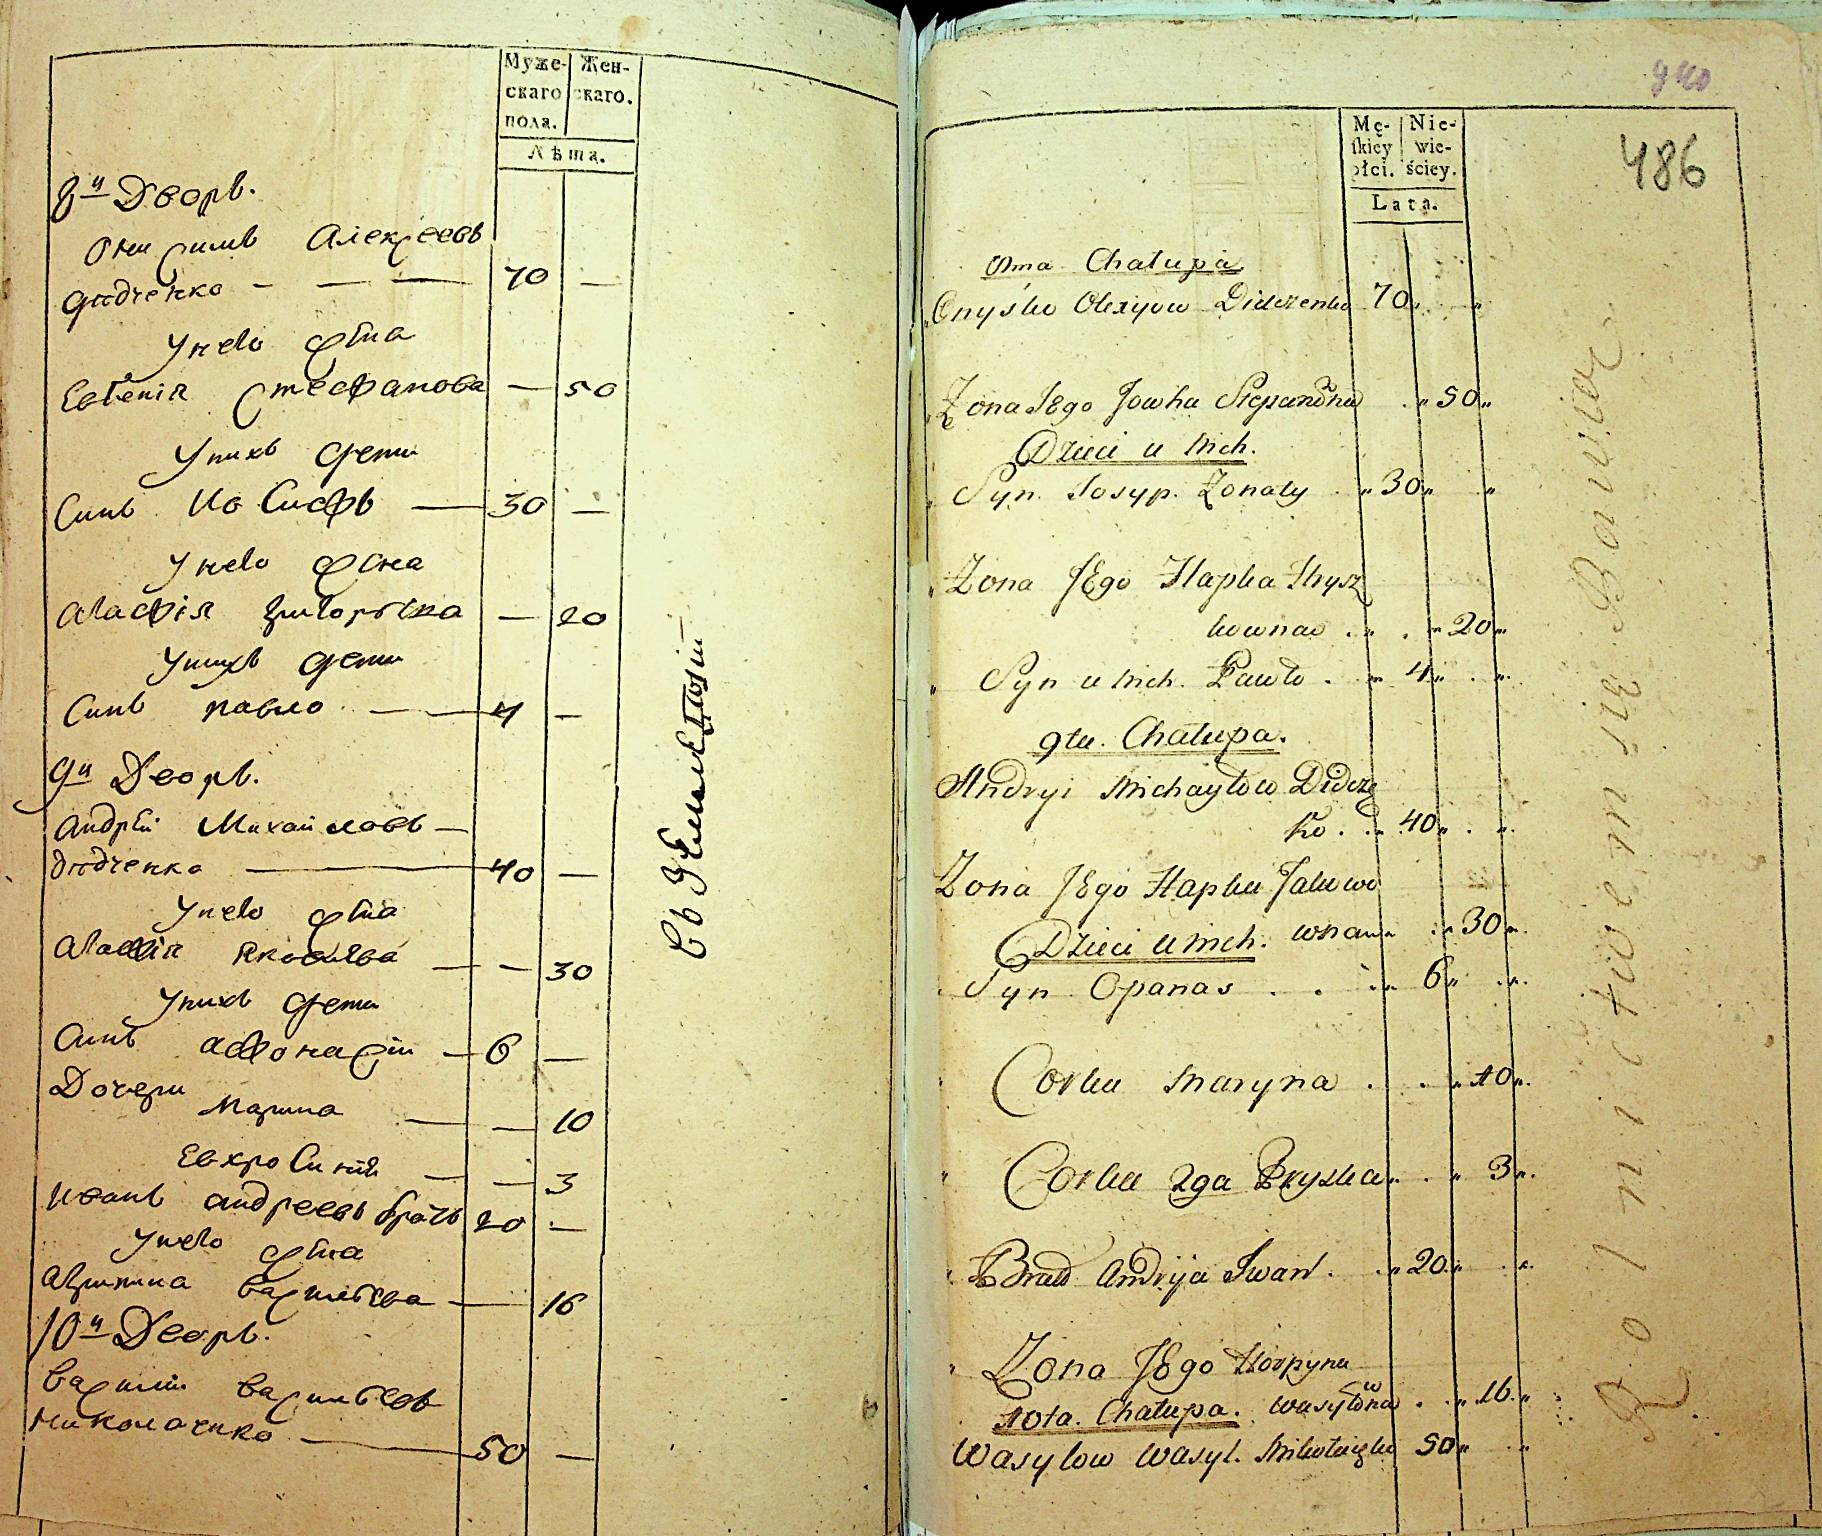 Муже- Жен-
скаго скаго.
пола.
Лѣта.
8й Дворъ.
Онисимъ Алексеевъ
дидченко — — — 70 —
Унево жѣна
Евгенія Стефанова — 50
Унихъ дети
Синъ Иосифъ — 30 —
Унево жена
Агафія Григорѣва — 20
Унихъ дети
Синъ павло — 4 —
9й Дворъ.
андрѣй Михайловъ —
дидченко — 40 —
Унево жѣна
Агафія Яковлева — — 30
Унихъ дети
Синъ афонасій — 6 —
Дочери
Марина — — 10
Евхросинія — — 3
Иванъ андреевъ братъ 20 —
Унево жѣна
Агрипина Василѣва — 16
10й Дворъ.
Василій Василѣевъ
Николаенко — 50 —
въ земледелій
940
486
Mę- Nie-
skiey wie-
płci. ściey.
Lata.
8ma Chałupa
Onyśko Olexyow Didczenko 70 „
Zona Jego Jowha Stepanowna „ 50 „
Dzieci u Nich.
Syn Josyp. Zonaty . „ 30 „ „
Zona Jego Hapka Hrysz
kowna . „ . „ 20 „
„ Syn u Nich. Pawło . „ 4 „ . „
9ta. Chałupa.
Andryi Michayłow Didcze
ko . . „ 40 „ . „
Zona Jego Hapka Jakowo
Dzieci u Nich. wna „ : „ 30 „
Syn Opanas . . . „ 6 „ . „
„ Corka Maryna . . „ 10 „
„ Corka 2ga Pryska „ . „ 3 „
„ Brat Andryja Iwan . . „ 20 „ . „
„ Zona Jego Horpyna
10ta. Chałupa. Wasylowna . „ 16 „
Wasylow Wasyl. Mikołaięko 50 „ „
Rolnictwem się Bawią